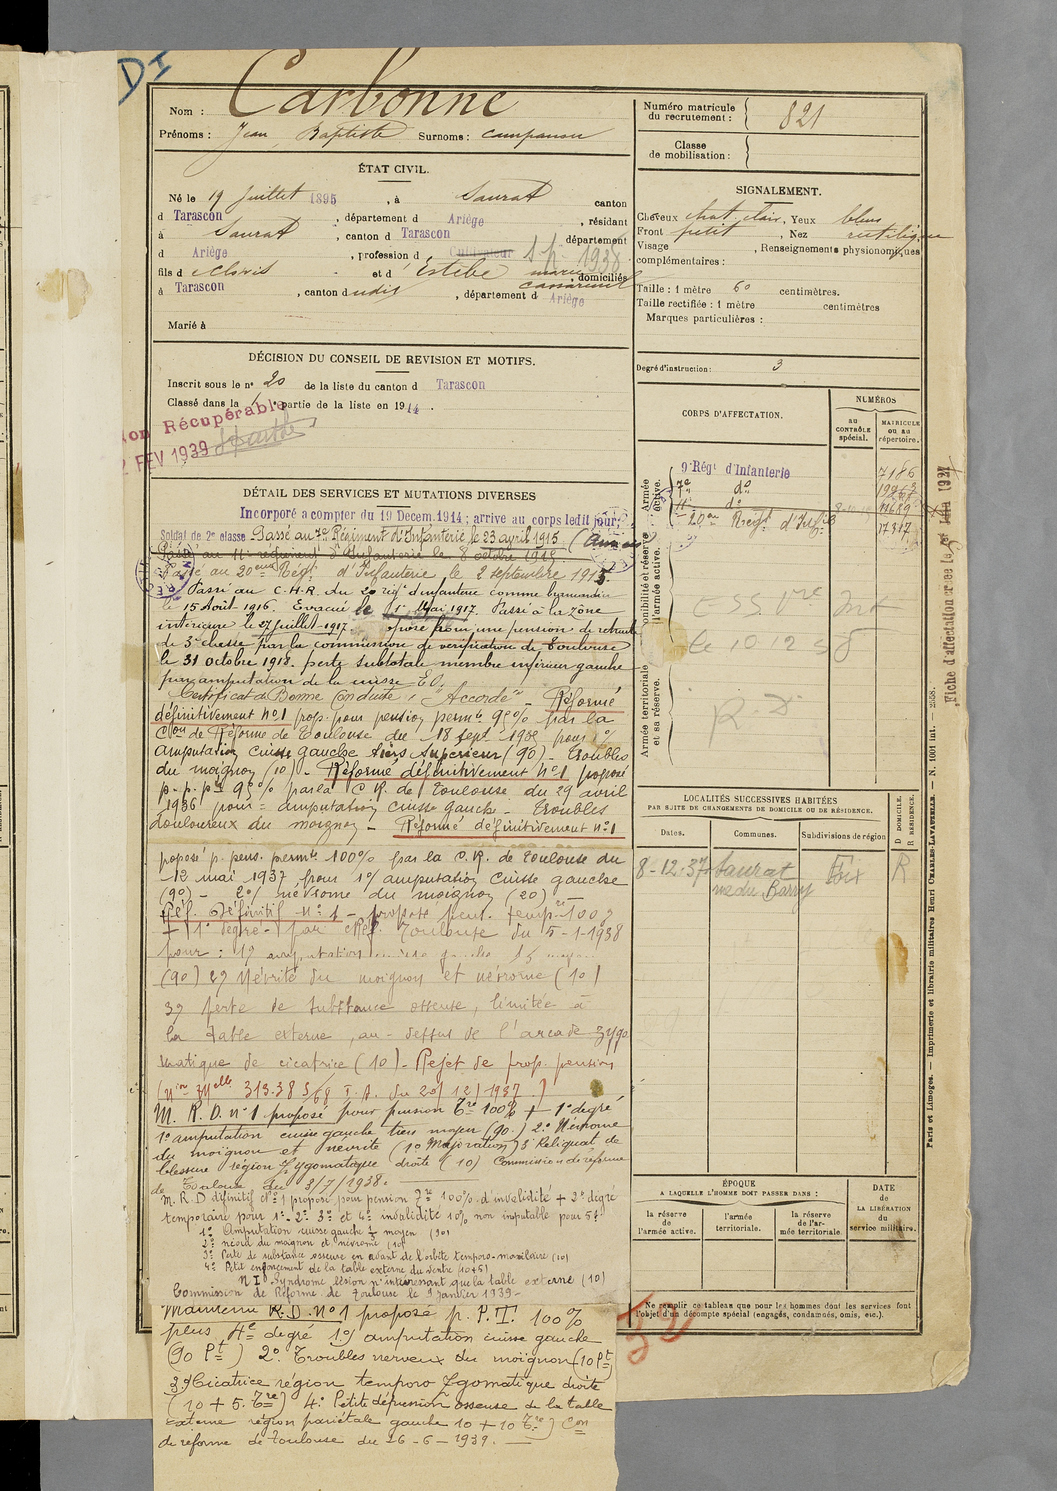 DI
Nom : Carbonne
Prénoms : Jean Baptiste Surnoms :
Numéro matricule du recrutement : 821
Classe de mobilisation :
ÉTAT CIVIL.
Né le 19 Juillet 1895, à Saurat canton
d Tarascon, département d Ariège, résidant
à Saurat, canton d Tarascon département
d Ariège, profession d Cultivateur 1938
fils d Clovis et d Estèbe marie domiciliés
à Tarascon, canton dudit, département d Ariège
Marié à
SIGNALEMENT.
Cheveux chat clair, Yeux bleus
Front petit, Nez rectiligne
Visage , Renseignements physionomiques
complémentaires :
Taille : 1 mètre 60 centimètres.
Taille rectifiée : 1 mètre centimètres
Marques particulières :
Degré d'instruction : 3
DÉCISION DU CONSEIL DE REVISION ET MOTIFS.
Inscrit sous le no 20 de la liste du canton d Tarascon
Classé dans la 1e partie de la liste en 1914.
on Récupérable
2 FEV 1939
DÉTAIL DES SERVICES ET MUTATIONS DIVERSES
Incorporé a compter du 19 Decem. 1914 ; arrivé au corps ledit jour;
Soldat de 2e classe Passé au 7e Régiment d'Infanterie le 23 avril 1915
Passé au 11e régiment d'Infanterie le 8 octobre 1915
Passé au 20eme Régt d'Infanterie le 2 septembre 1915
Passé au C.H.R. du 20 régt d'infanterie comme
le 15 Août 1916. Evacué le 1er Mai 1917. Passé à la zône
intérieure le 27 juillet 1917. oposé pour une pension de retraite
de 3e classe par la commission de vérification de Toulouse
le 31 octobre 1918. perte subtotale membre inférieur gauche
par amputation de la cuisse
Certificat de Bonne Conduite : "Accordé" - Réformé
définitivement no 1 prop. pour pension permte 95% par la
Con de Réforme de Toulouse du 18 sept pour 1o/
Amputation Cuisse gauche tiers supérieur (90) - Troubles
du moignon (10) - Réformé définitivement No 1 proposé
p. p. pte 95% par la C.R. de Toulouse du 29 avril
1936 pour = amputation cuisse gauche - Troubles
douloureux du moignon - Réformé définitivement no 1
proposé p. pens. permte 100% par la C.R. de Toulouse du
12 mai 1937 pour 1o/ amputation cuisse gauche
(90) - 2o/ névrome du moignon (20) -
Réf. Définitif no 1 - proposé pens. temp. 100%
+ 1o degré - par cRéf. Toulouse du 5-1-1938
pour : 1o amputation cuisse gauche
(90) 2o Névrite du moignon et névrome (10)
3o perte de substance osseuse, limitée à
la table externe, au-dessus de l'arcade zygo
matique de cicatrice (10) - Rejet de prop. pension
(Non Mielle 313.38 5/68 I.A. du 20/12/1937)
M. R. D. no 1 proposé pour pension Tre 100% + 1o degré
1o amputation cuisse gauche tiers moyen (90.) 2o Névrome
du moignon et névrite (10 Majoration) 3 Reliquat de
blessure région Zygomatique droite (10) Commission de réforme
de Toulouse du 3/7/1938.
M. R. D définitif No 1 proposé pour pension Tre 100% d'invalidité + 2o degré
temporaire pour 1o - 2o 3o et 4o invalidité 10% non imputable pour 5o
1o Amputation cuisse gauche moyen (90)
2o névrite du moignon et névrome (10)
3o Perte de substance osseuse en avant de l'orbite temporo-maxilaire (10)
4o Petit enfoncement de la table externe du ventre (10+5)
N I Syndrome lésion n'intéressant que la table externe (10)
Commission de Réforme de Toulouse le 9 Janvier 1939 -
Maintenu R.D. No 1 proposé p. P.T. 100%
plus 4e degré 1o) amputation cuisse gauche
(90 Pt) 2o. Troubles nerveux du moignon (10 Pt)
3o/ Cicatrice région temporo Zygomatique droite
(10 + 5. Tre) 4o Petite dépression osseuse de la table
externe région pariétale gauche 10 + 10 Tre) Con
de réforme de Toulouse du 26-6-1939.
CORPS D'AFFECTATION.
NUMÉROS
au CONTRÔLE spécial.
MATRICULE OU AU répertoire.
Armée active.
9e Régt d'Infanterie 7186
7e do
11e do 11689
20me Regt d'Infie 17317
Disponibilité et réserve de l'armée active.
Armée territoriale et sa réserve.
le 10 12
R.D.
LOCALITÉS SUCCESSIVES HABITÉES
PAR SUITE DE CHANGEMENTS DE DOMICILE OU DE RÉSIDENCE.
Dates. Communes. Subdivisions de région D DOMICILE. R RÉSIDENCE.
8-12-37 Saurat Foix R
rue du Barry
ÉPOQUE
A LAQUELLE L'HOMME DOIT PASSER DANS :
la réserve de l'armée active.
l'armée territoriale.
la réserve de l'armée territoriale.
DATE de LA LIBÉRATION du service militaire.
Ne remplir ce tableau que pour les hommes dont les services font
l'objet d'un décompte spécial (engagés, condamnés, omis, etc.).
32
Paris et Limoges. — Imprimerie et librairie militaires Henri CHARLES-LAVAUZELLE. — N. 1001 int. — 2558.